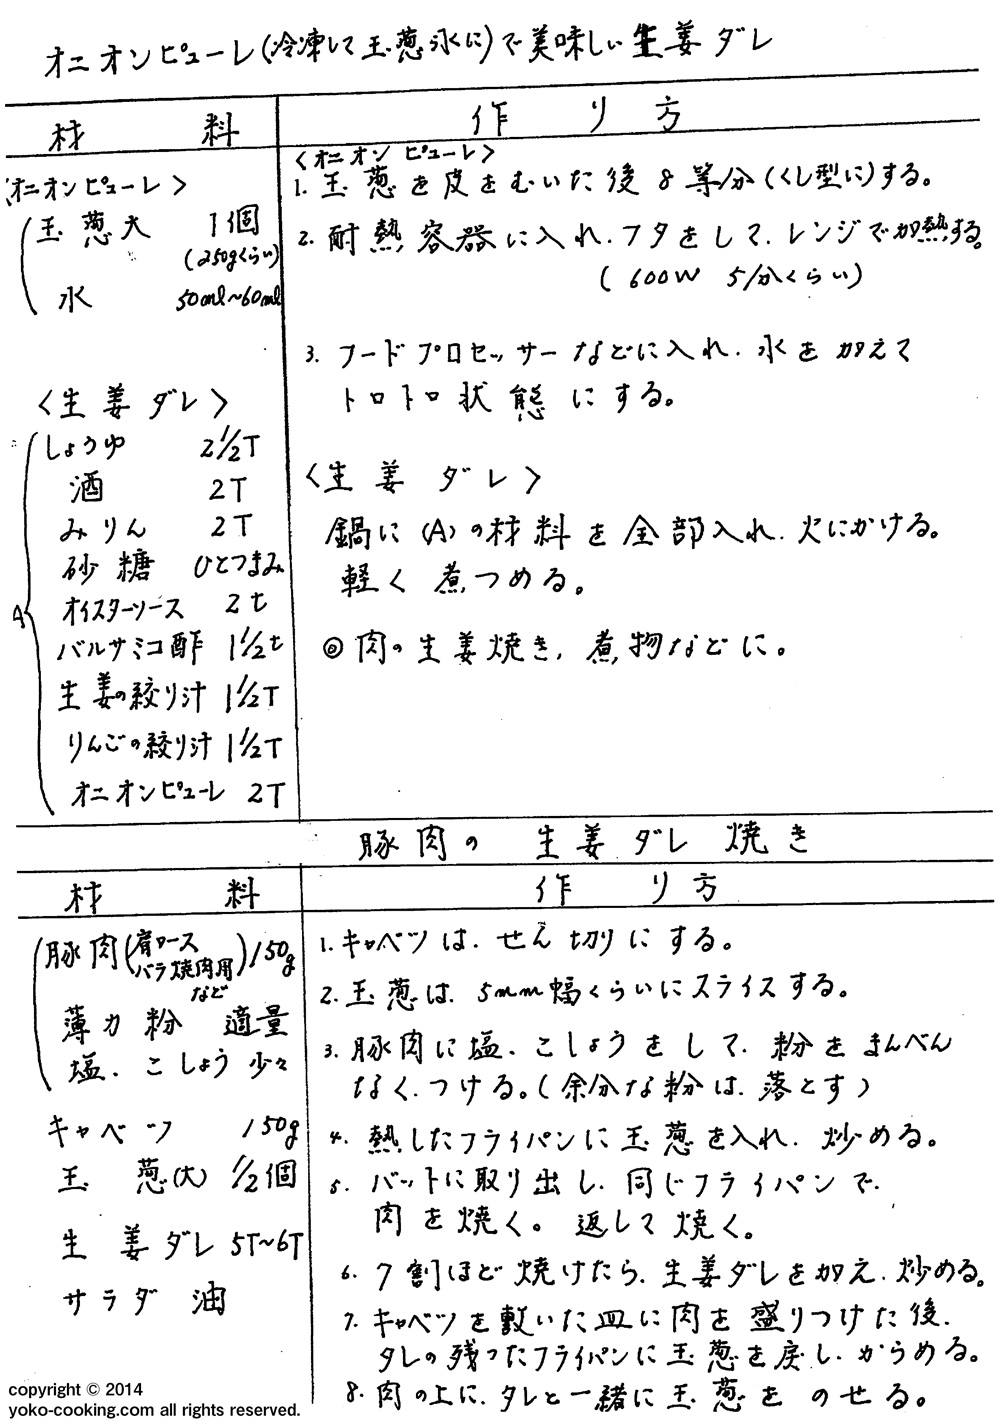 オニオンピューレ(冷凍して玉葱氷に)で美味しい生姜ダレ
材 料
作 り 方
〈オニオンピューレ〉
玉葱大 1個
(250gくらい)
水 50ml~60ml
〈生姜ダレ〉
A
しょうゆ 2 1/2T
酒 2T
みりん 2T
砂糖 ひとつまみ
オイスターソース 2t
バルサミコ酢 1 1/2t
生姜の絞り汁 1 1/2T
りんごの絞り汁 1 1/2T
オニオンピューレ 2T
〈オニオンピューレ〉
1. 玉葱を皮をむいた後8等分(くし型に)する。
2. 耐熱容器に入れ、フタをして、レンジで加熱する。
(600W 5分くらい)
3. フードプロセッサーなどに入れ、水を加えて
トロトロ状態にする。
〈生姜ダレ〉
鍋に(A)の材料を全部入れ、火にかける。
軽く煮つめる。
◎肉の生姜焼き、煮物などに。
豚肉の生姜ダレ焼き
材 料
作 り 方
豚肉(肩ロース
バラ焼肉用
など)150g
薄力粉 適量
塩、こしょう 少々
キャベツ 150g
玉葱(大) 1/2個
生姜ダレ 5T~6T
サラダ油
1. キャベツは、せん切りにする。
2. 玉葱は、5mm幅くらいにスライスする。
3. 豚肉に塩、こしょうをして、粉をまんべん
なく、つける。(余分な粉は、落とす)
4. 熱したフライパンに玉葱を入れ、炒める。
5. バットに取り出し、同じフライパンで、
肉を焼く。返して焼く。
6. 7割ほど焼けたら、生姜ダレを加え、炒める。
7. キャベツを敷いた皿に肉を盛りつけた後、
タレの残ったフライパンに玉葱を戻し、からめる。
8. 肉の上に、タレと一緒に玉葱をのせる。
copyright © 2014
yoko-cooking.com all rights reserved.